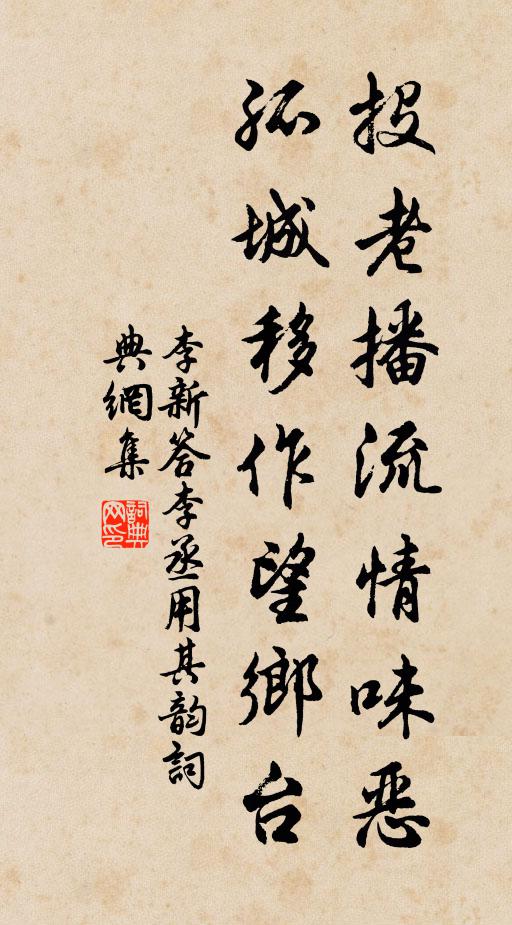 投老播流情味恶
孤城移作望鄉台
李新答李丞用其韵詞
典網集
詞典
网印